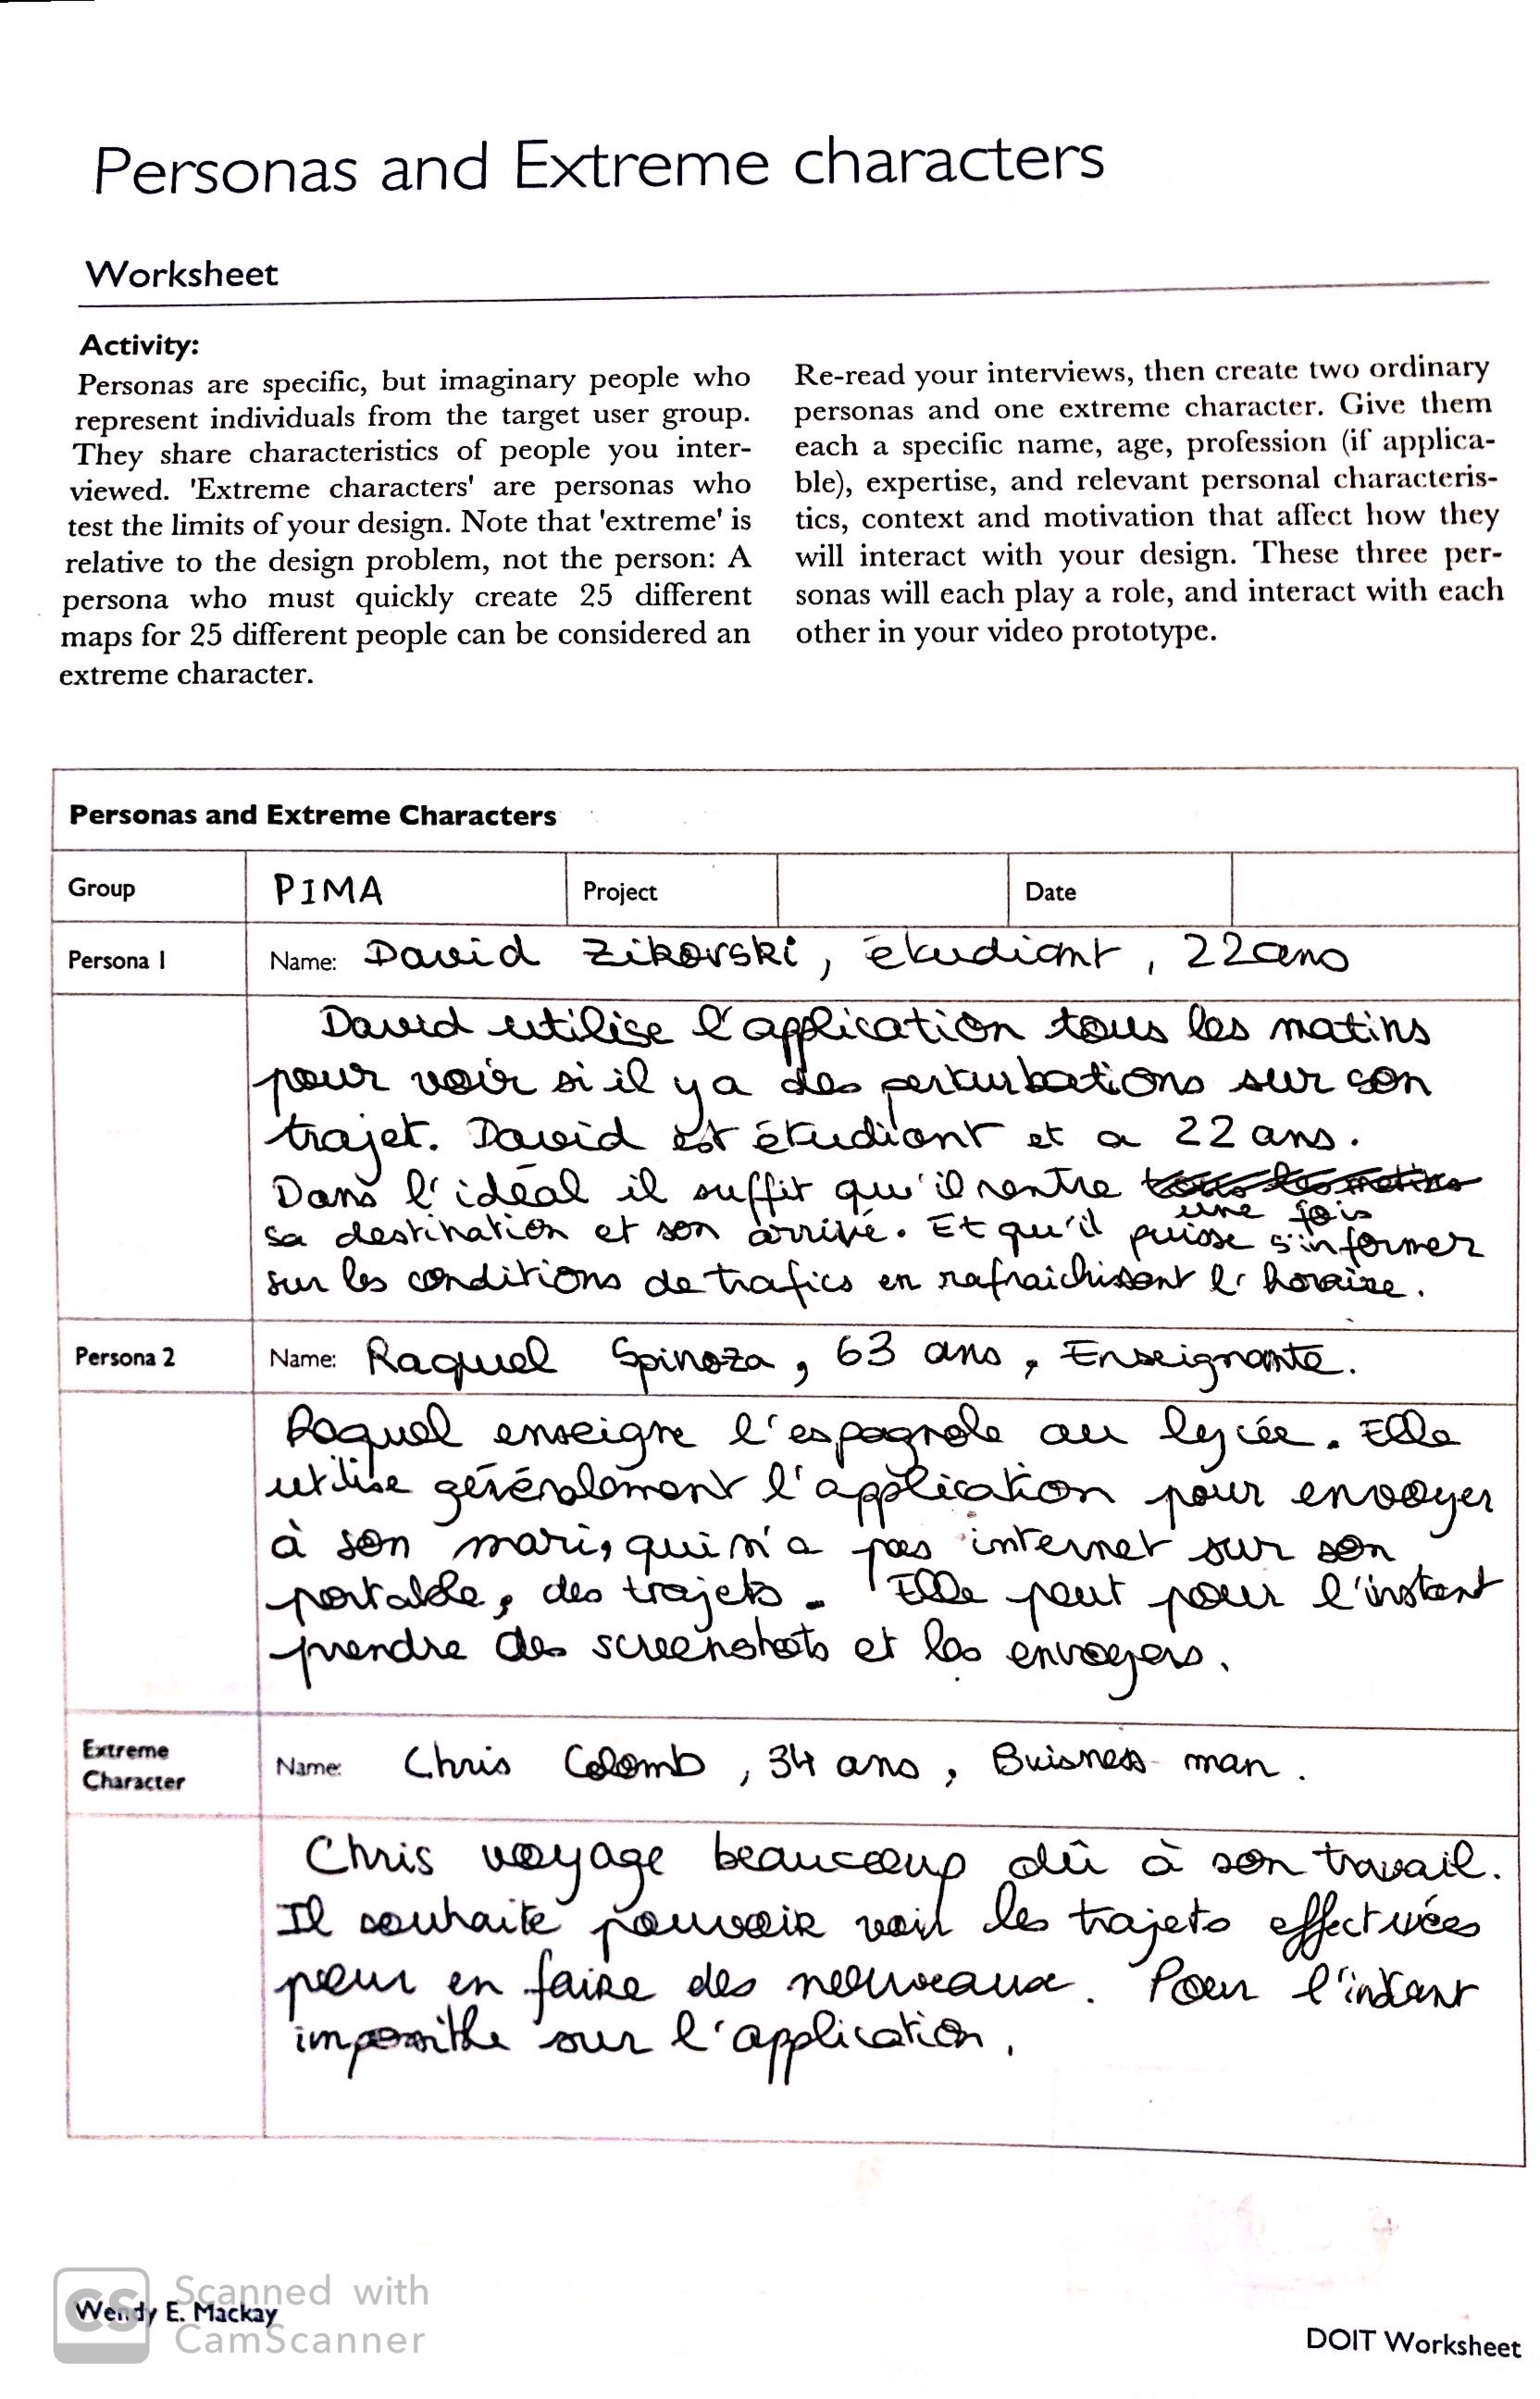 Personas and Extreme characters
Worksheet
Activity:
Personas are specific, but imaginary people who
represent individuals from the target user group.
They share characteristics of people you inter-
viewed. 'Extreme characters' are personas who
test the limits of your design. Note that 'extreme' is
relative to the design problem, not the person: A
persona who must quickly create 25 different
maps for 25 different people can be considered an
extreme character.
Re-read your interviews, then create two ordinary
personas and one extreme character. Give them
each a specific name, age, profession (if applica-
ble), expertise, and relevant personal characteris-
tics, context and motivation that affect how they
will interact with your design. These three per-
sonas will each play a role, and interact with each
other in your video prototype.
Personas and Extreme Characters
Group PIMA Project Date
Persona 1 Name: David Zikovski, étudiant, 22ans
David utilise l'application tous les matins
pour voir si il y a des perturbations sur son
trajet. David est étudiant et a 22 ans.
Dans l'idéal il suffit qu'il rentre tous les matins
une fois
sa destination et son arrivé. Et qu'il puisse s'informer
sur les conditions de trafics en rafraichissant l'horaire.
Persona 2 Name: Raquel Spinoza, 63 ans, Enseignante.
Raquel enseigne l'espagnole au lycée. Elle
utilise généralement l'application pour envoyer
à son mari, qui n'a pas internet sur son
portable, des trajets. Elle peut pour l'instant
prendre des screenshots et les envoyers.
Extreme
Character
Name: Chris Colomb, 34 ans, Buisness man.
Chris voyage beaucoup dû à son travail.
Il souhaite pouvoir voir les trajets effectuées
pour en faire des nouveaux. Pour l'instant
impossible sur l'application.
CS Scanned with
CamScanner
Wendy E. Mackay
DOIT Worksheet